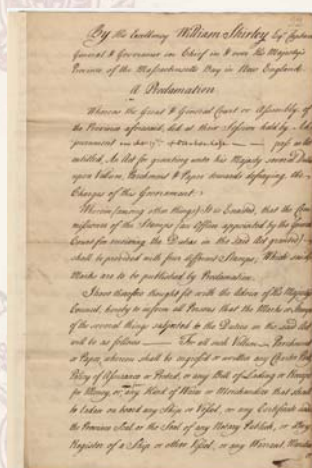 By His Excellency William Shirley Esq. Captain
General & Governour in Chief in & over His Majesty's
Province of the Massachusetts Bay in New England
A Proclamation.
Whereas the Great & General Court or Assembly of
the Province aforesaid, held at their Session held by
pass
intitled, An Act for granting unto his Majesty several Duties
upon Vellum, Parchment & Paper towards defraying the
Charges of this Government;
Wherein (among other things) It is Enacted, that the Com
missioner of the Stamps (an Officer appointed by the General
Court for receiving the Duties in the said Act granted)
shall be provided with four different Stamps; Which said
Marks are to be published by Proclamation.
I have therefore thought fit with the Advice of His Majesty's
Council, hereby to inform all Persons that the Marks or Stamps
of the several things subjected to the Duties in the said Act
will be as follows For all such Vellum Parchment
or Paper, whereon shall be ingrossed or written any
Policy of Assurance or Protest, or any Bill of Lading or Receipt
for Money, or any Kind of Wares or Merchandize that shall
be laden on board any Ship or Vessel, or any Certificate
the Province Seal or the Seal of any Notary Publick, or
Register of a Ship or other Vessel, or any Warrant